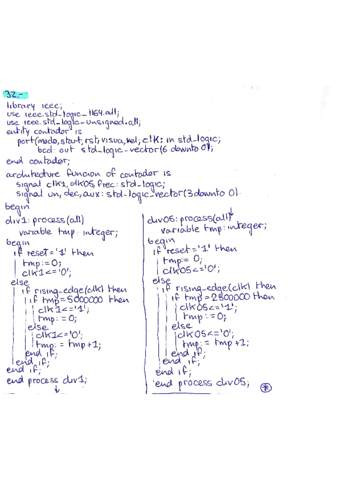 32.-
library ieee;
use ieee.std_logic_1164.all;
use ieee.std_logic_unsigned.all;
entity contador is
port(modo,start,rst,visua,vel,clk: in std_logic;
bcd: out std_logic_vector(6 downto 0);
end contador;
architecture funcion of contador is
signal clk1, clk05, frec: std_logic;
signal un, dec, aux: std_logic_vector(3 downto 0)
begin
div1: process(all)
variable tmp: integer;
begin
if reset='1' then
tmp:=0;
clk1<='0';
else
if rising-edge(clk) then
if tmp=5000000 then
clk1<='1';
tmp:=0;
else
clk1<='0';
tmp:=tmp+1;
end if;
end if;
end if;
end process div1;
div05: process(all)
variable tmp: integer;
begin
if reset='1' then
tmp:=0;
clk05<='0';
else
if rising-edge(clk) then
if tmp=2500000 then
clk05<='1';
tmp:=0;
else
clk05<='0';
tmp:=tmp+1;
end if;
end if;
end if;
end process div05;